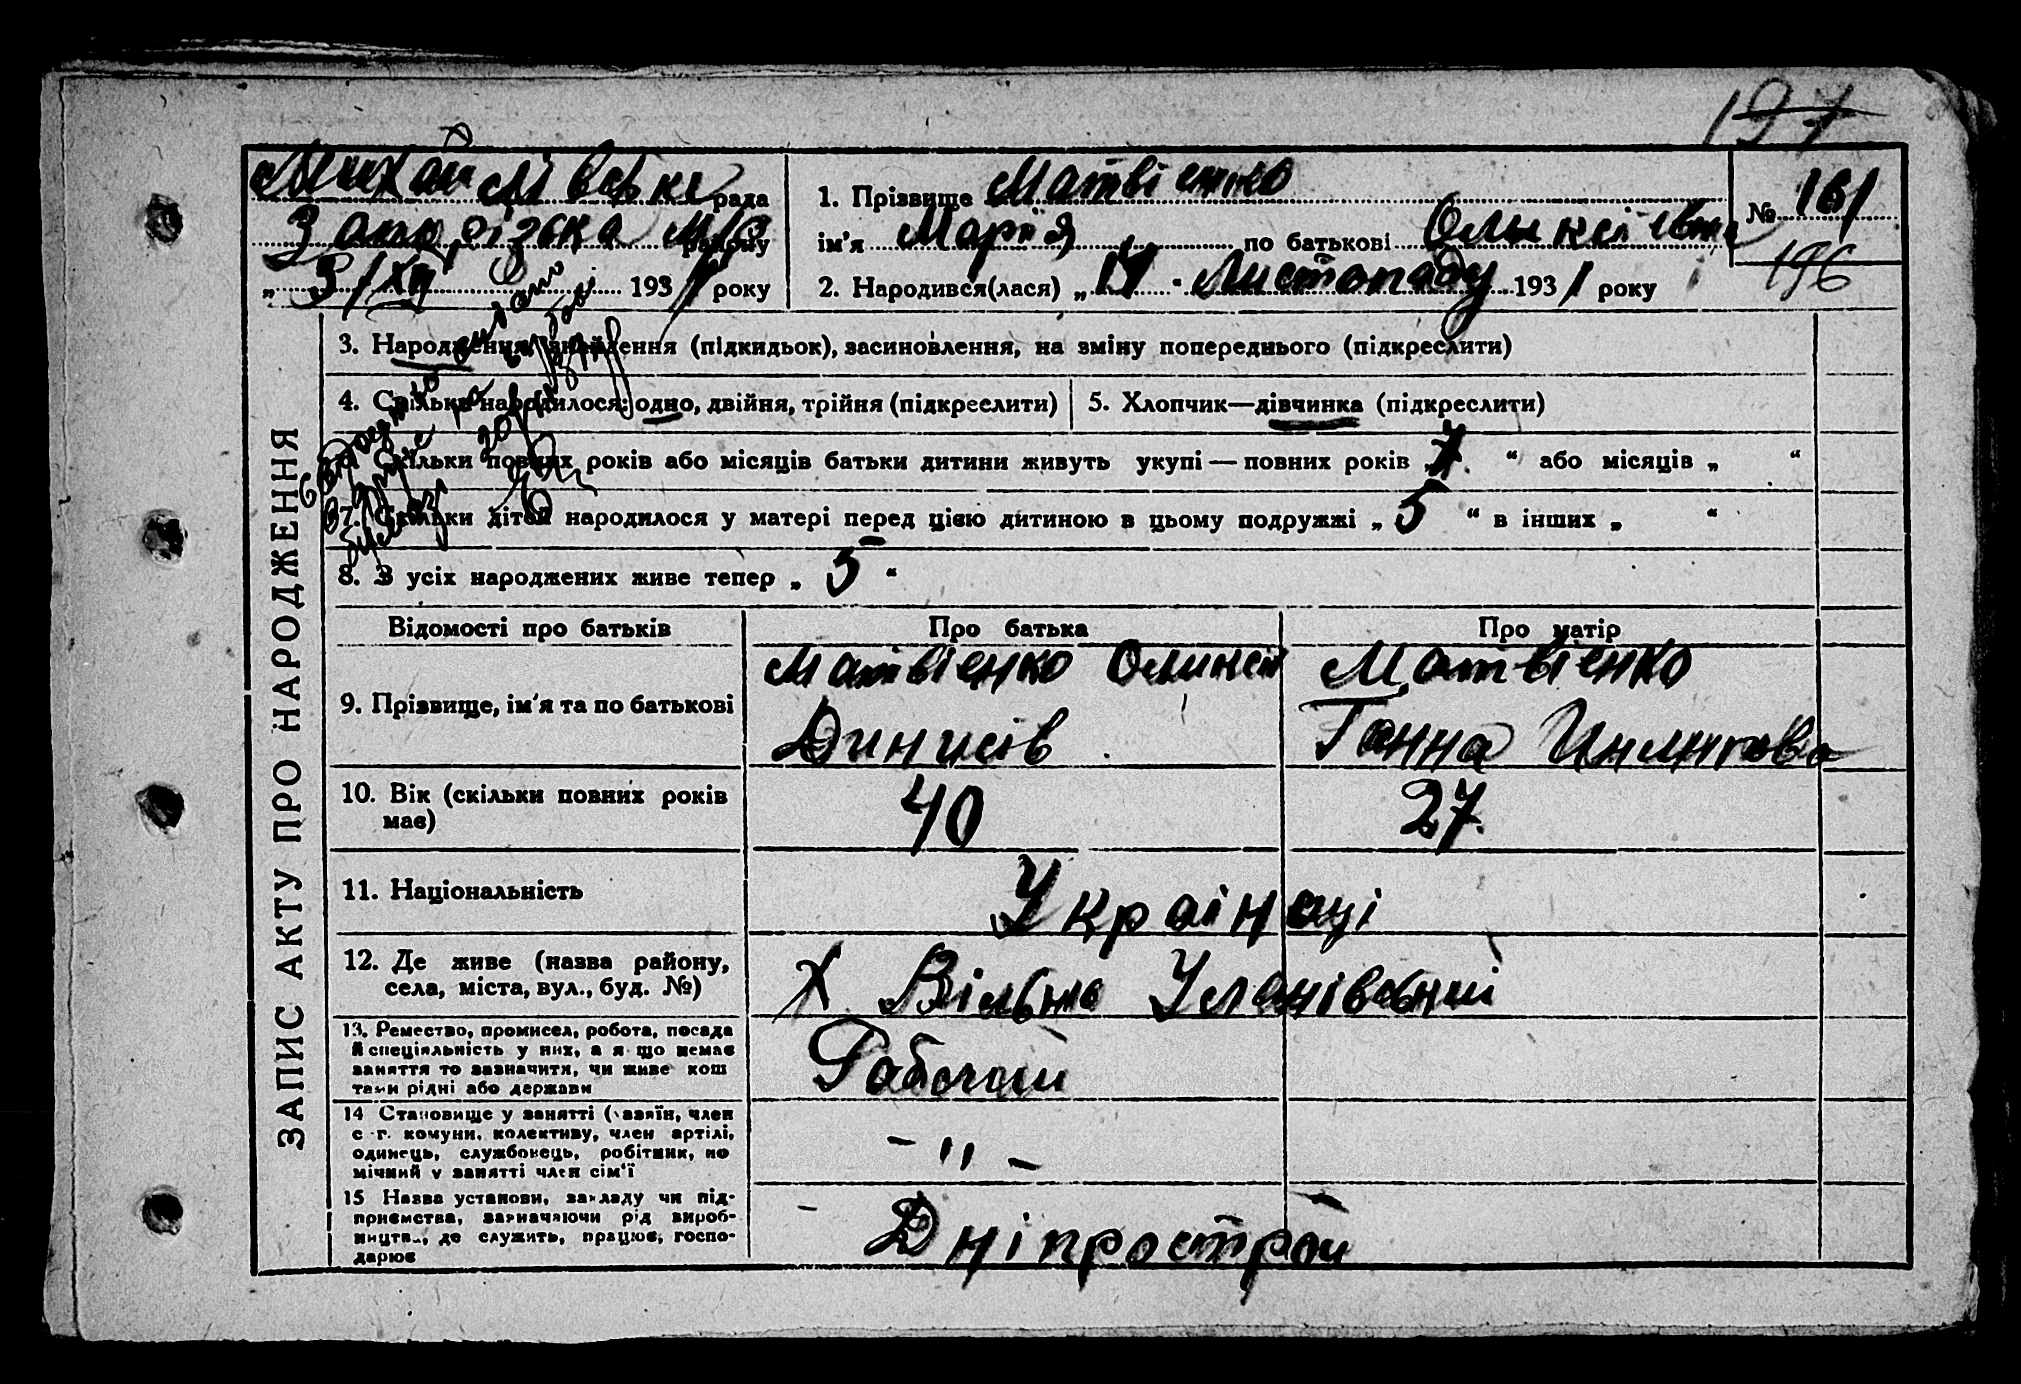 197
Михайлівська рада
Запорізька м/р району
„ 3/XII 1931 року
1. Прізвище Матвіенко
ім'я Марія по батькові Олыксіівна
2. Народився(лася) „ 17 " Листопаду 1931 року
№ 161
196
ЗАПИС АКТУ ПРО НАРОДЖЕННЯ
3. Народження, знайдення (підкидьок), засиновлення, на зміну попереднього (підкреслити)
4. Скільки народилося: одно, двійня, трійня (підкреслити)
5. Хлопчик—дівчинка (підкреслити)
6. Скільки повних років або місяців батьки дитини живуть укупі — повних років „ 7 “ або місяців „ “
7. Скільки дітей народилося у матері перед цією дитиною в цьому подружжі „ 5 “ в інших „ “
8. З усіх народжених живе тепер „ 5 “
Відомості про батьків
Про батька
Про матір
9. Прізвище, ім'я та по батькові
Матвіенко Оликсій
Динисів
Матвіенко
Ганна
10. Вік (скільки повних років
має)
40
27
11. Національність
Украінці
12. Де живе (назва району,
села, міста, вул., буд. №)
Х Вільно Уланівський
13. Ремество, промисел, робота, посада
й спеціяльність у них, а я що немає
заняття то зазначити, чи живе кош
тами рідні або держави
Рабочий
14 Становище у занятті (хазяїн, член
с-г. комуни, колективу, член артілі,
одинець, службовець, робітник, по
мічний у занятті член сім'ї
- " -
15 Назва установи, закладу чи під-
приємства, зазначаючи рід вироб-
ництва, де служить, працює, госпо-
дарює
Дніпрострой